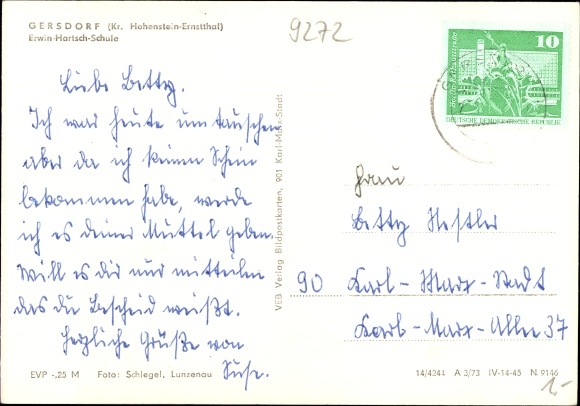 GERSDORF (Kr. Hohenstein-Ernstthal)
Erwin-Hartsch-Schule
9272
Liebe Betty.
Ich war heute umtauschen
aber da ich keinen Schein
bekommen habe, werde
ich es deiner Muttel geben.
Will es dir nur mitteilen
das du Bescheid weißt.
Herzliche Grüße von
Suse.
EVP -,25 M Foto: Schlegel, Lunzenau
VEB Verlag Bildpostkarten, 901 Karl-Marx-Stadt
10
DEUTSCHE DEMOKRATISCHE REPUBLIK
Frau
Betty Hestler
90 Karl-Marx-Stadt
Karl-Marx-Allee 37
14/4244 A 3/73 IV-14-45 N 9146
1,-